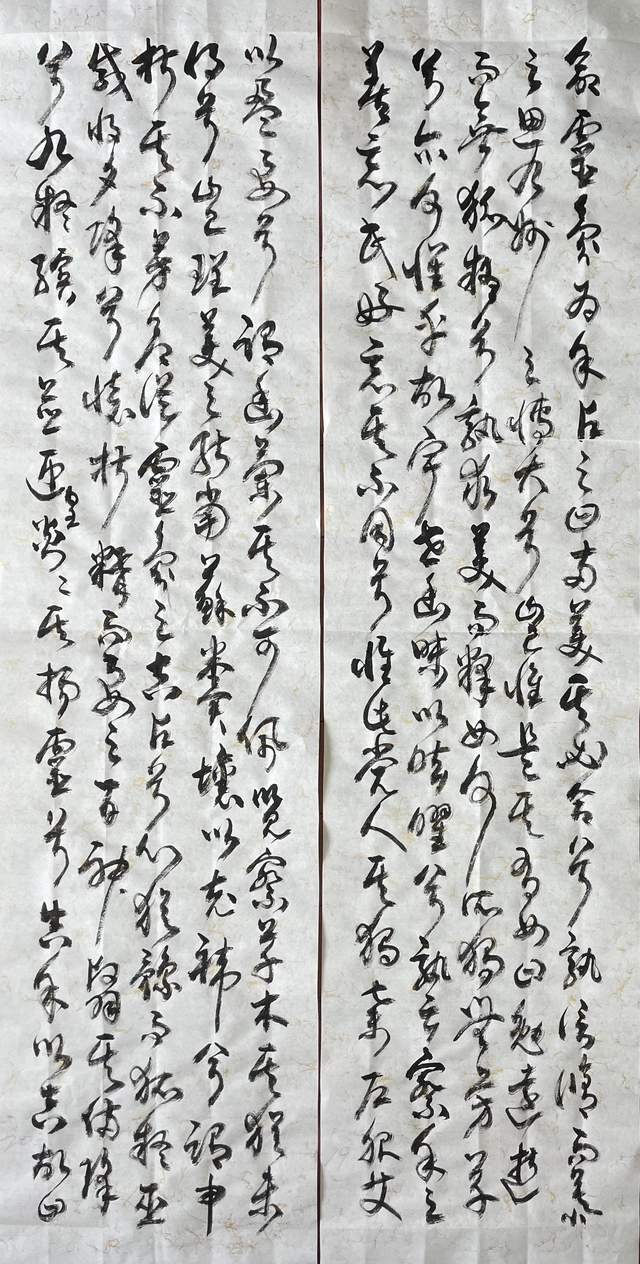 命靈氛為余占之曰兩美其必合兮孰信脩而慕
之思九州之博大兮豈惟是其有女曰勉遠逝
而無狐疑兮孰求美而釋女何所獨無芳草
兮尔何懷乎故宇世幽昧以眩曜兮孰云察余之
善惡民好惡其不同兮惟此黨人其獨異戶服艾
以盈要兮謂幽蘭其不可佩覽察草木其猶未
得兮豈珵美之能當蘇糞壤以充幃兮謂申
椒其不芳欲從靈氛之吉占兮心猶豫而狐疑巫
咸將夕降兮懷椒糈而要之百神翳其備降
兮九疑繽其並迎皇剡〻其揚靈兮告余以吉故曰